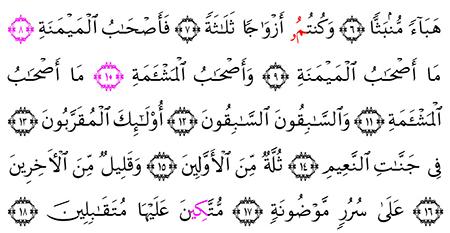 هَبَآءً مُّنۢبَثًّا ﴿٦﴾ وَكُنتُمُۥ أَزۡوَٰجًا ثَلَٰثَةً ﴿٧﴾ فَأَصۡحَٰبُ ٱلۡمَيۡمَنَةِ ﴿٨﴾
مَا أَصۡحَٰبُ ٱلۡمَيۡمَنَةِ ﴿٩﴾ وَأَصۡحَٰبُ ٱلۡمَشۡـَٔمَةِ ﴿١٠﴾ مَا أَصۡحَٰبُ
ٱلۡمَشۡـَٔمَةِ ﴿١١﴾ وَٱلسَّٰبِقُونَ ٱلسَّٰبِقُونَ ﴿١٢﴾ أُوْلَٰٓئِكَ ٱلۡمُقَرَّبُونَ ﴿١٣﴾
فِي جَنَّٰتِ ٱلنَّعِيمِ ﴿١٤﴾ ثُلَّةٌ مِّنَ ٱلۡأَوَّلِينَ ﴿١٥﴾ وَقَلِيلٌ مِّنَ ٱلۡأٓخِرِينَ
﴿١٦﴾ عَلَىٰ سُرُرٍ مَّوۡضُونَةٍ ﴿١٧﴾ مُتَّكِينَ عَلَيۡهَا مُتَقَٰبِلِينَ ﴿١٨﴾